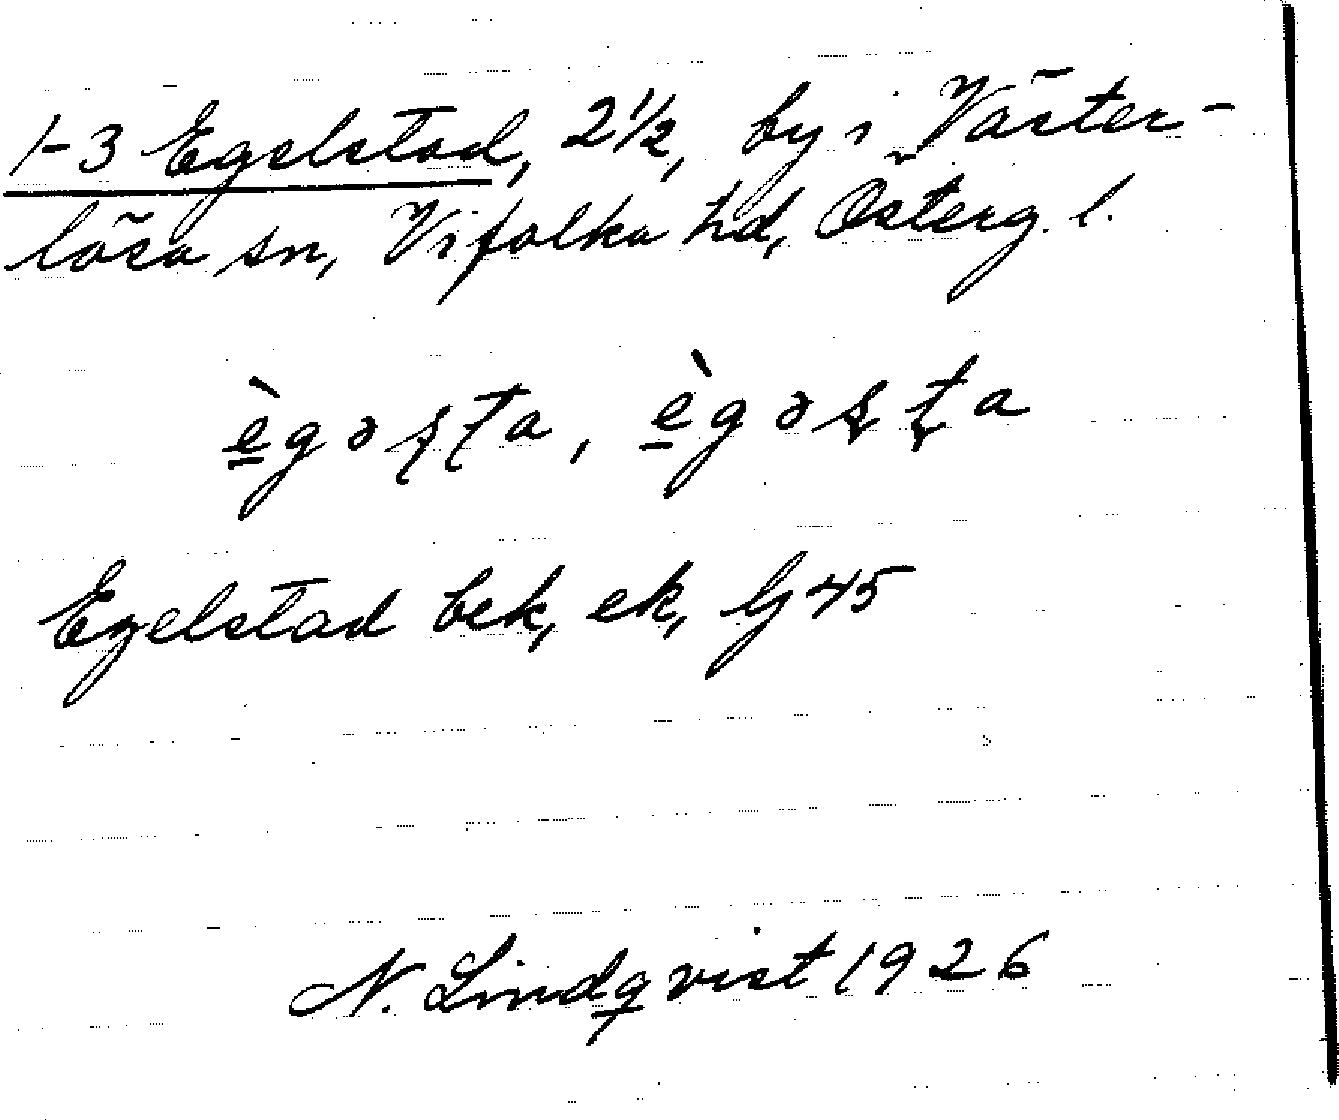 1-3 Egelstad, 2½, by i Väster-
lösa sn, Vifolka hd, Österg. l.
è̱gəʂʈa, è̱gəʂʈa
Egelstad bek, ek, Gj 45
N. Lindqvist 1926